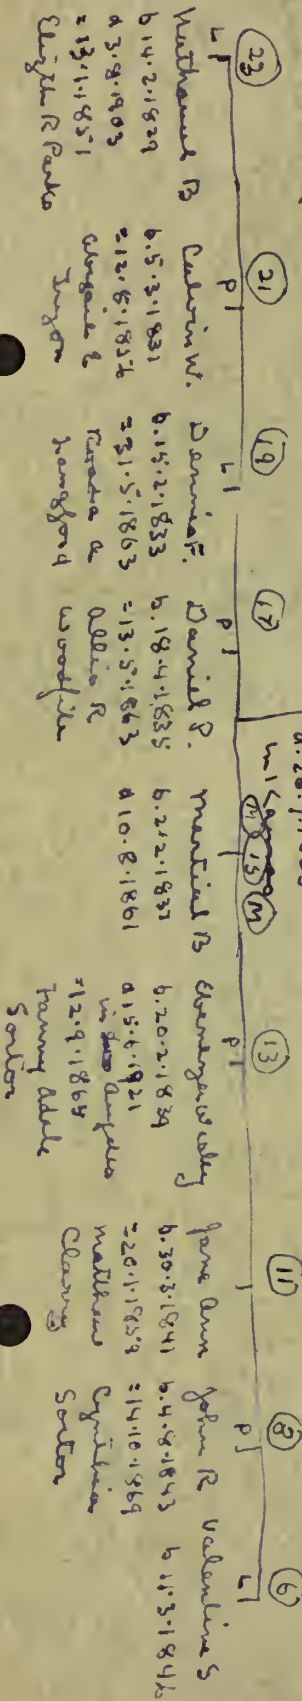 23
L
Nathaniel B
b.14.2.1829
d 3.8.1903
=13.1.1851
Elizth R Parks
21
P
Calvin W.
b.5.3.1831
=12.8.1856
Abigail E
Tryon
19
L
Dennis F.
b.15.2.1833
=31.5.1863
Langford
17
P
Daniel P.
b.18.4.1835
=13.5.1863
Allis R
Woodfile
15
M
Martial B
b.2.2.1837
d 10.8.1861
13
P
Ebenezer Wesley
b.20.2.1839
d 15.6.1921
in Los Angeles
=12.9.1865
Fanny Adele
Sortor
11
Jane Ann
b.30.3.1841
=20.1.1859
Matthew
8
P
John R
b.4.8.1843
=14.10.1869
Cynthia
Sortor
6
L
Valentine S
b 11.3.1846